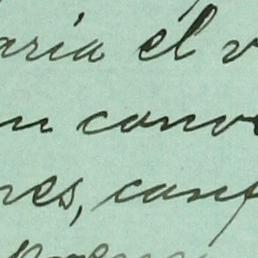 aria el v
n conve
res, conf